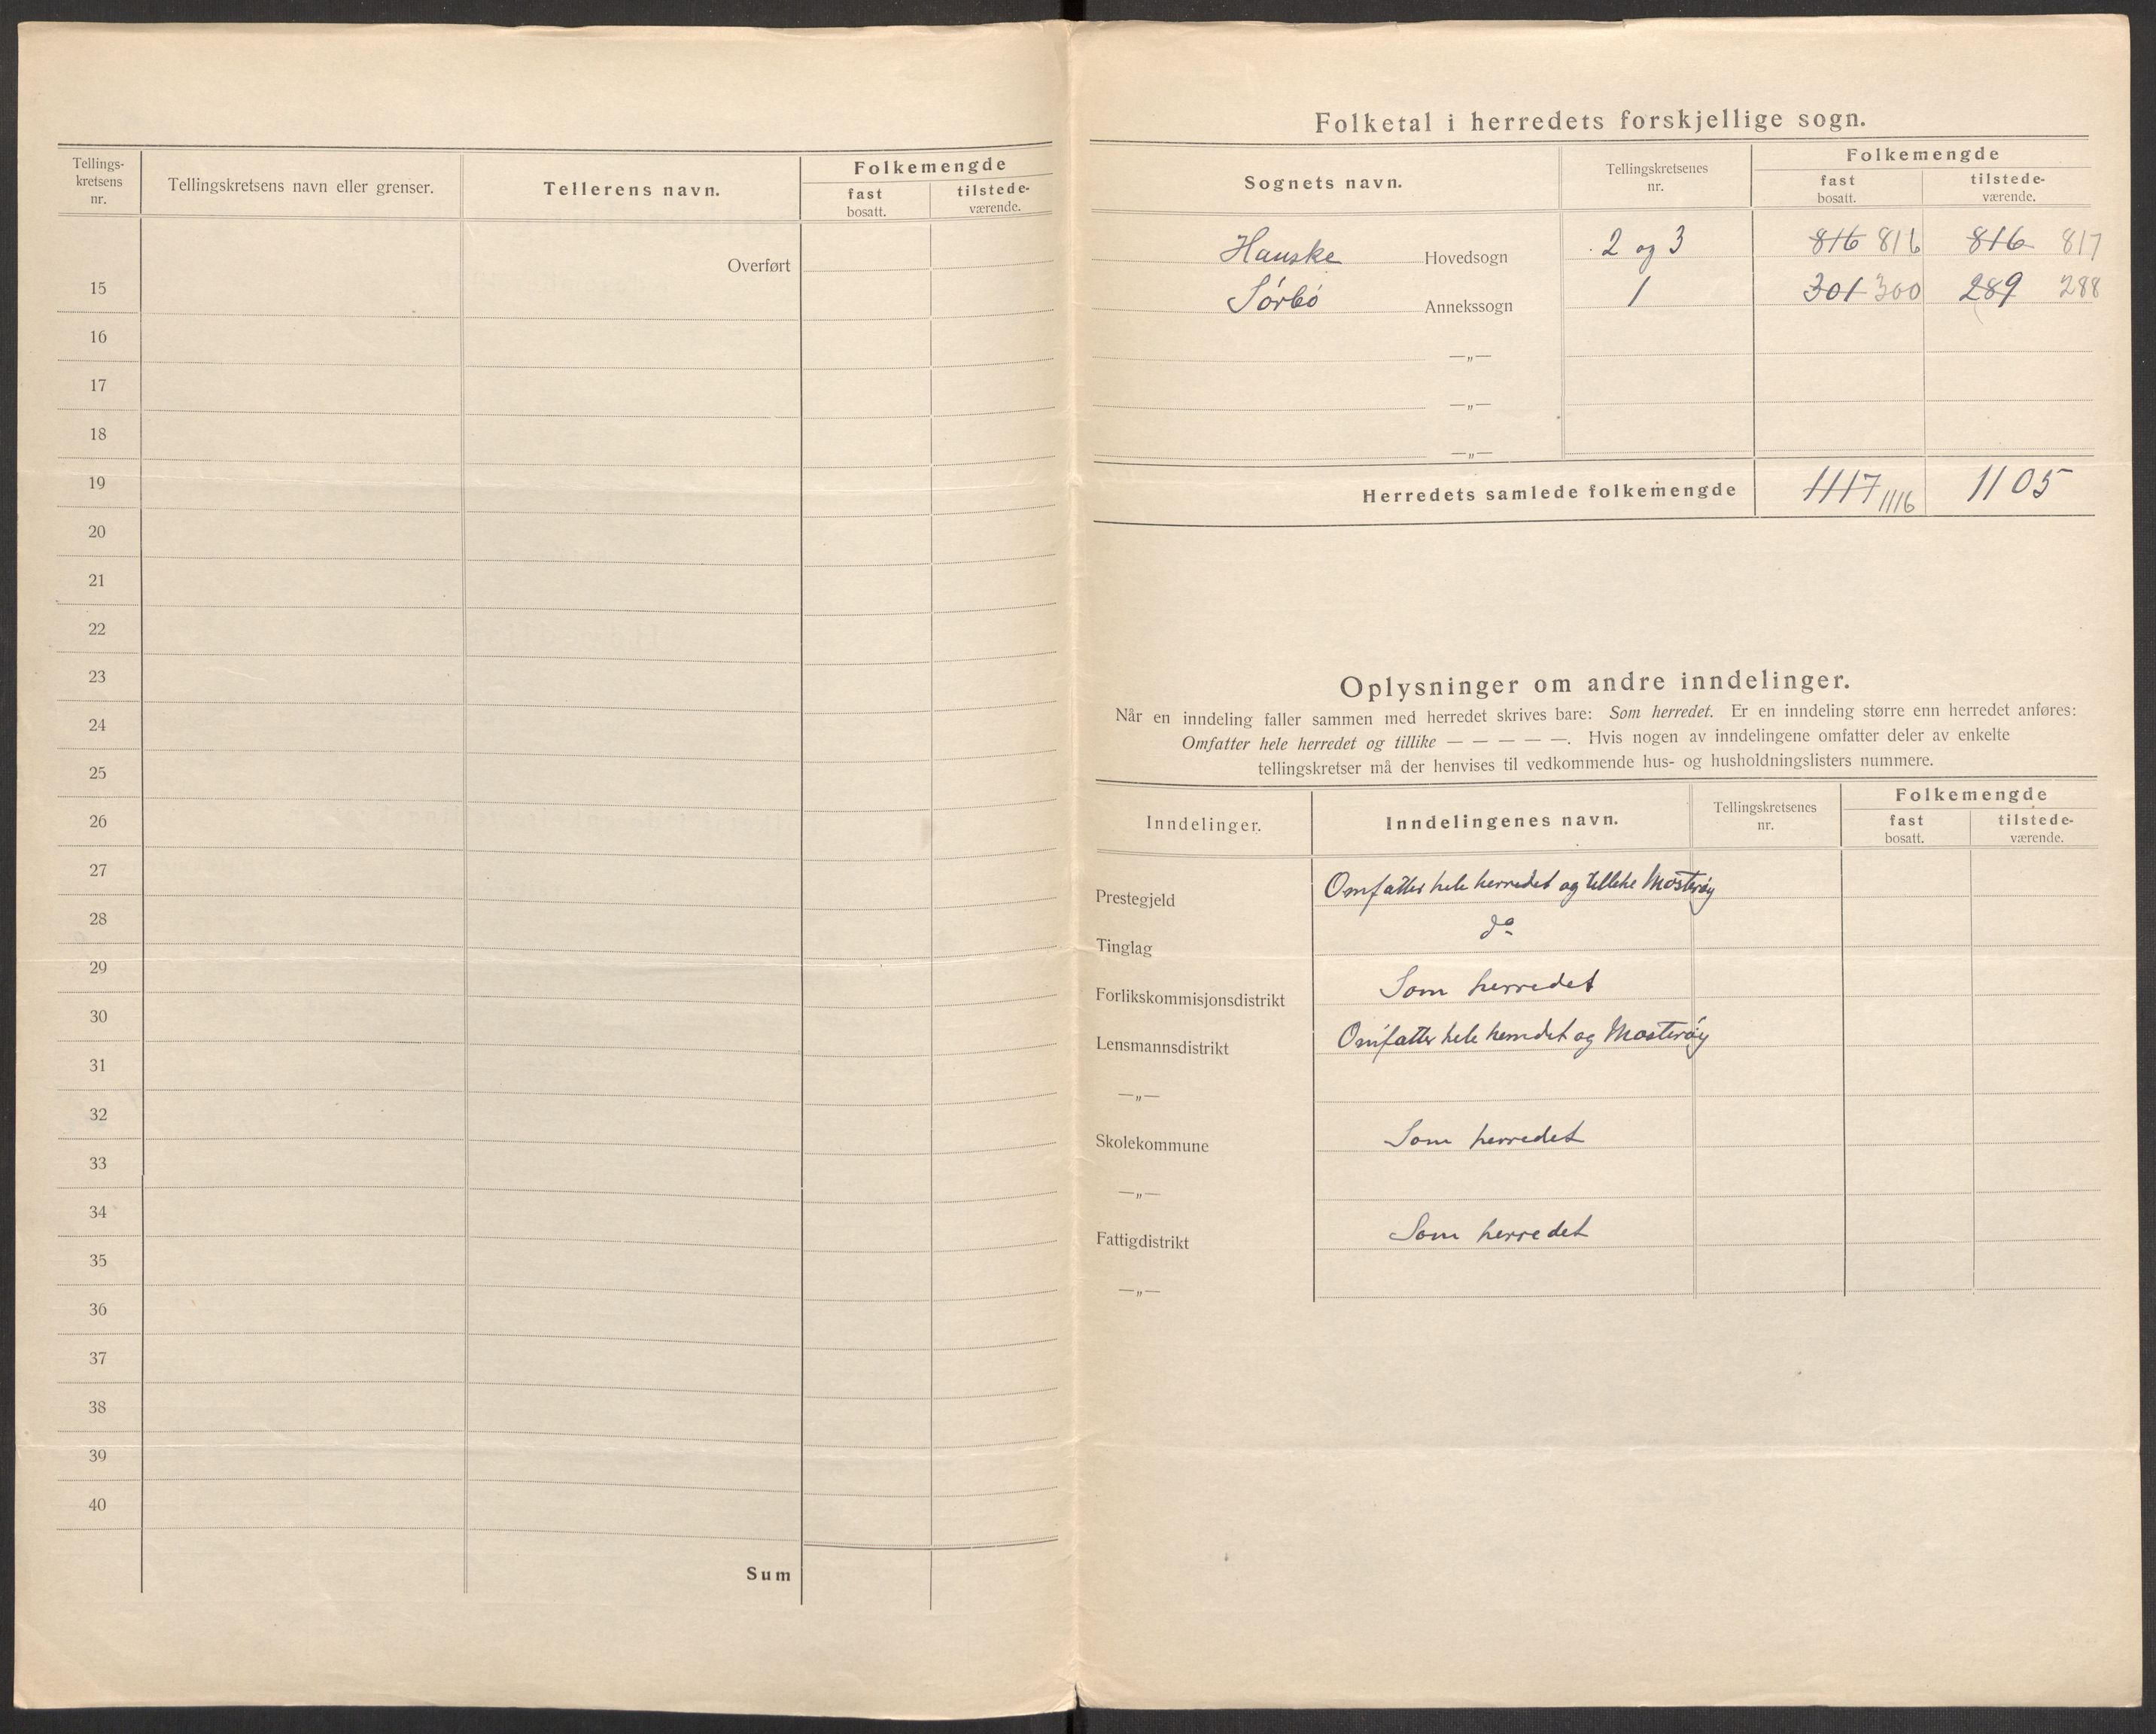 Tellings-
kretsens
nr.
Tellingskretsens navn eller grenser.
Tellerens navn.
Folkemengde
fast
bosatt.
tilstede-
værende.
Overført
15
16
17
18
19
20
21
22
23
24
25
26
27
28
29
30
31
32
33
34
35
36
37
38
39
40
Sum
Folketal i herredets forskjellige sogn.
Sognets navn.
Tellingskretsenes
nr.
Folkemengde
fast
bosatt.
tilstede-
værende.
Hauske Hovedsogn 2 og 3 816 816 816 817
Sørbø Annekssogn 1 301 300 289 288
—„—
—„—
—„—
Herredets samlede folkemengde 1117 1116 1105
Oplysninger om andre inndelinger.
Når en inndeling faller sammen med herredet skrives bare: Som herredet. Er en inndeling større enn herredet anføres:
Omfatter hele herredet og tillike — — — — —. Hvis nogen av inndelingene omfatter deler av enkelte
tellingskretser må der henvises til vedkommende hus- og husholdningslisters nummere.
Inndelinger.
Inndelingenes navn.
Tellingskretsenes
nr.
Folkemengde
fast
bosatt.
tilstede-
værende.
Prestegjeld Omfatter hele herredet og tillike Mosterøy
Tinglag do
Forlikskommisjonsdistrikt Som herredet
Lensmannsdistrikt Omfatter hele herredet og Mosterøy
—„—
Skolekommune Som herredet
—„—
Fattigdistrikt Som herredet
—„—